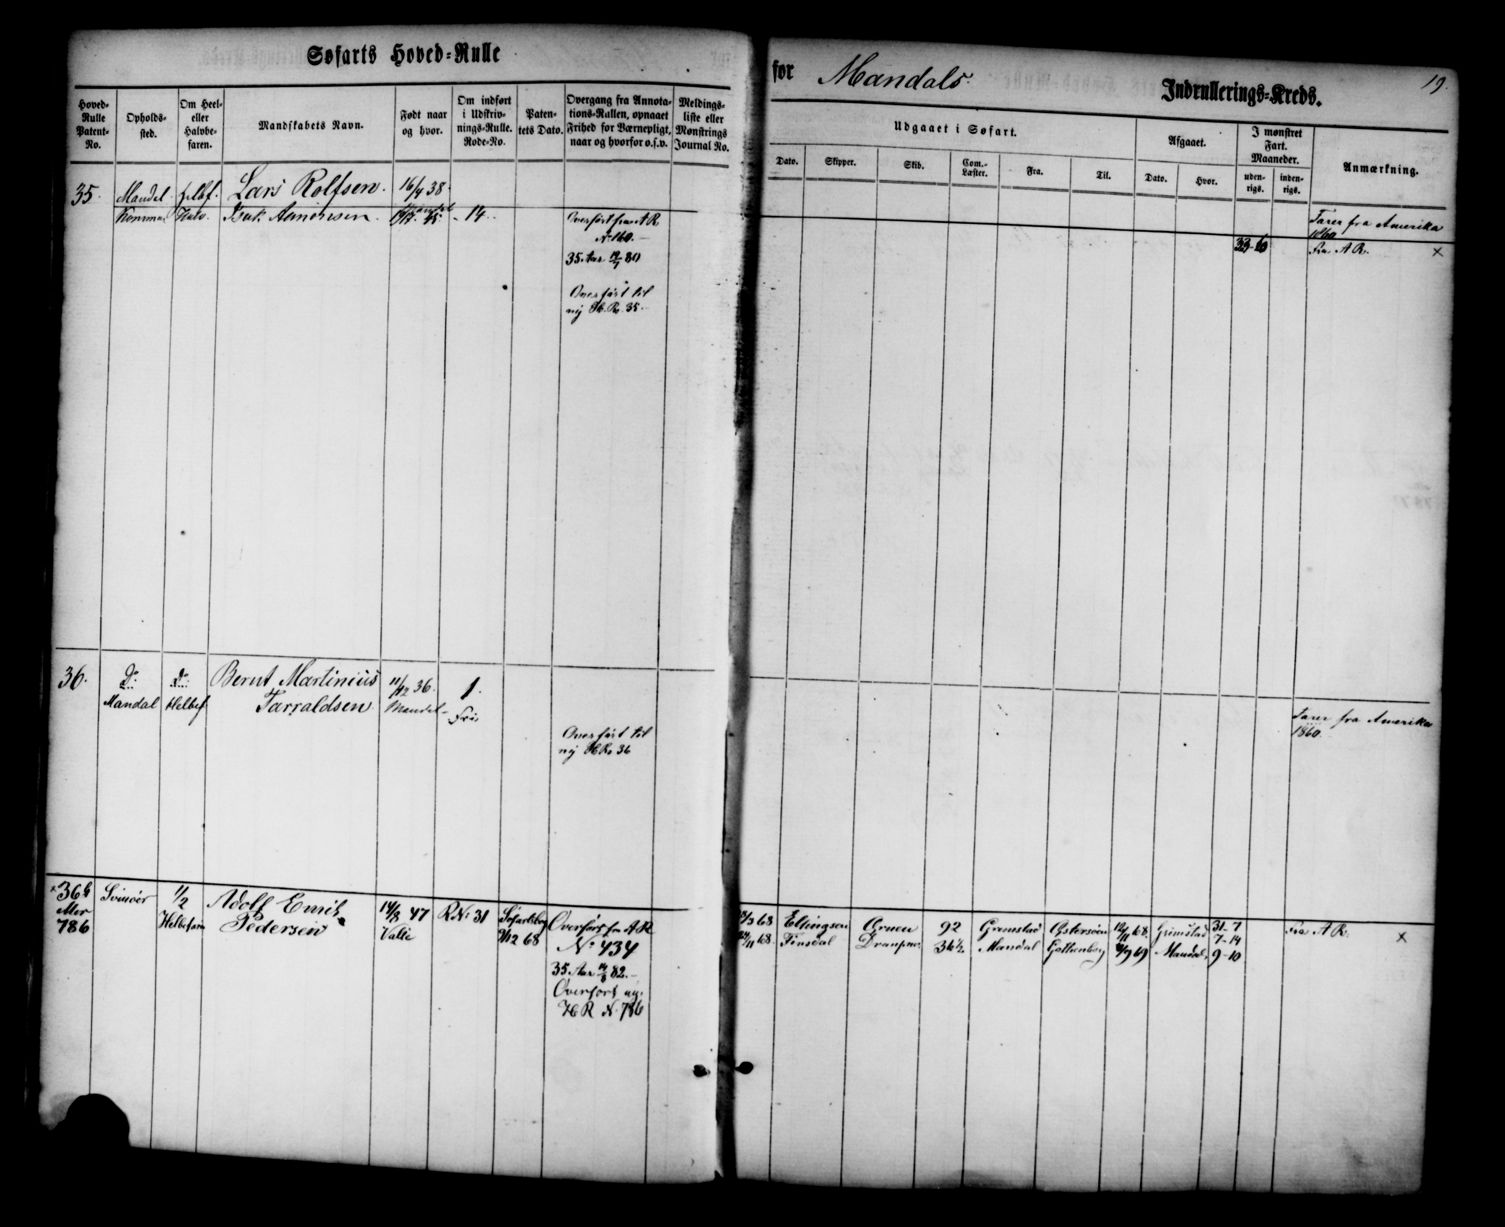 Søfarts Hoved-Rulle
for Mandals Indrullerings-Kreds.
19.
Hoved-Rulle Patent-No.
Opholds-sted.
Om Heel- eller Halvbe-faren.
Mandskabets Navn.
Født naar og hvor.
Om indført i Udskriv-nings-Rulle. Rode-No.
Paten-tets Dato.
Overgang fra Annota-tions-Rullen, opnaaet Frihed for Værnepligt, naar og hvorfor o.s.v.
Meldings-liste eller Mønstrings Journal No.
Udgaaet i Søfart.
Dato.
Skipper.
Skib.
Com.-Læster.
Fra.
Til.
Afgaaet.
Dato.
Hvor.
I mønstret Fart. Maaneder.
uden-rigs.
inden-rigs.
Anmærkning.
35.
Mandal
helbf.
Lars Rolfsen.
16/4 38.
Farer fra Amerika
1860
Halv
Aanensen
45
14
Overført fra A R
No 160.
35 Aar 80
Overført til
ny H. R. 35.
33-6
Fra A R.
×
36.
Do
Mandal
Do
Helbef
Bernt Martinius
Tarraldsen
11/12 36.
Mandal
1.
Fri
Overført til
ny H R 36
Farer fra Amerika
1860.
× 36 b
786
Svinøer
1/2
Helbefaren
Adolf Emil
Pedersen
14/8 47
Valle
R No 31
12 68
Overført fra A R
No 434
35 Aar 82.
Overført ny.
H R No 786
68
Ellingsen
92
Grimstad
Østersøen
68
Grimstad
31-7
7-14
68
Finsdal
36 1/2
Mandal
Gottenborg
69
Mandal
9-10
Fra A R.
×